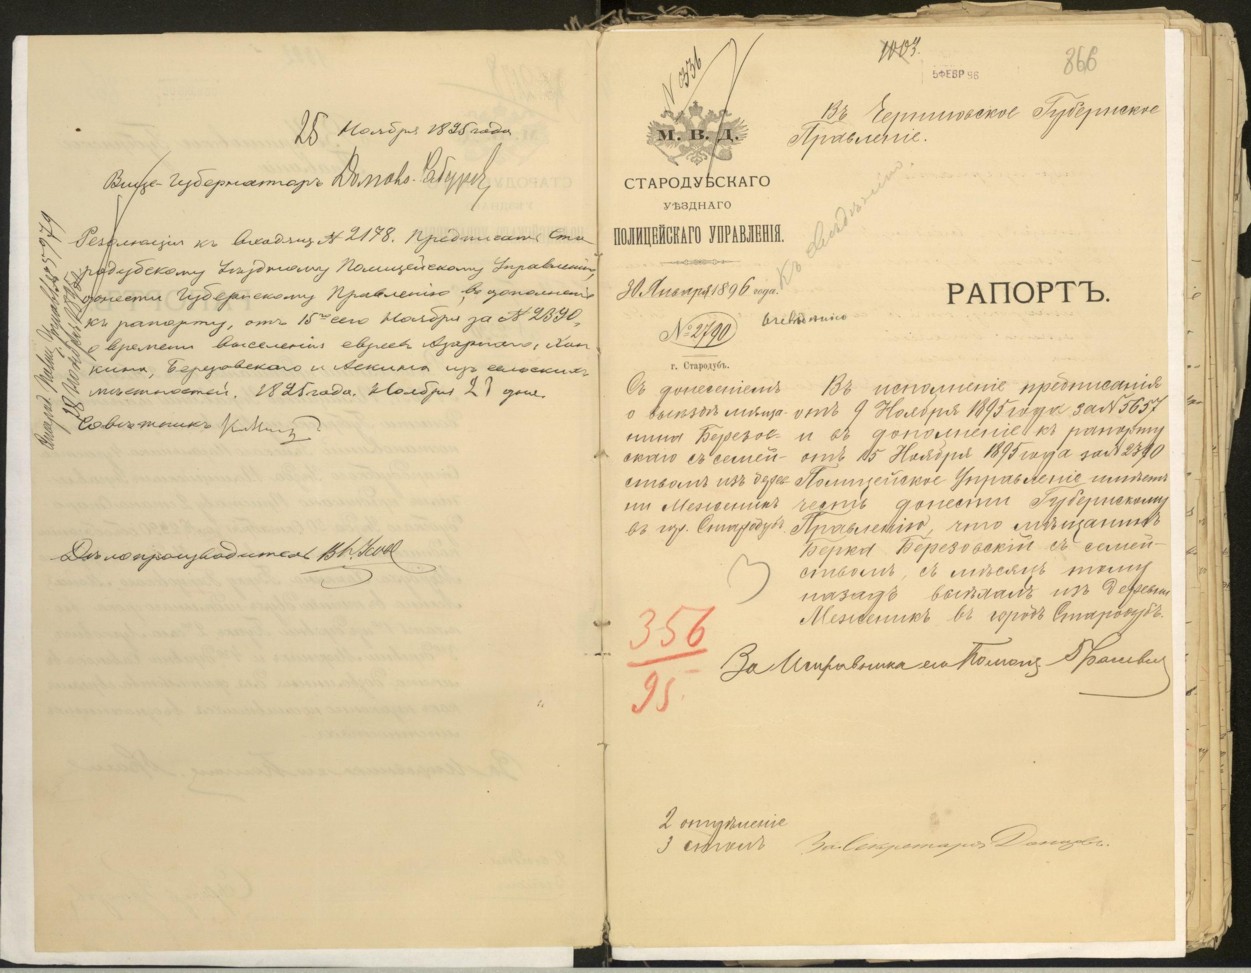 25 Ноября 1895 года
Вице-Губернаторъ
Резолюція къ № 2178. Предписать Ста-
родубскому Уѣздному Полицейскому Управленію,
донести Губернскому Правленію, въ дополненіе
къ рапорту, отъ 15го сего Ноября за № 2390,
о времени выселенія евреевъ Хан-
кина, Березовскаго и Аскина изъ сельскихъ
мѣстностей. 1895 года. Ноября 27 дня.
Совѣтникъ
Дѣлопроизводитель
28 Ноября 1895
№ 5979
№ 336
1003.
5 ФЕВР 96
866
М. В. Д.
СТАРОДУБСКАГО
УѢЗДНАГО
ПОЛИЦЕЙСКАГО УПРАВЛЕНІЯ.
30 Января 1896 года.
№ 2790
г. Стародубъ.
Въ Черниговское Губернское
Правленіе.
Къ свѣдѣнію
РАПОРТЪ.
Съ донесеніемъ
о выѣздѣ мѣща-
нина Березов-
скаго съ семей-
ствомъ изъ дерев
ни Меженикъ
въ гор. Стародубъ.
Въ исполненіе предписанія
отъ 9 Ноября 1895 года за № 5657
и въ дополненіе къ рапорту
отъ 15 Ноября 1895 года за № 2390
Полицейское Управленіе имѣетъ
честь донести Губернскому
Правленію, что мѣщанинъ
Берка Березовскій съ семей-
ствомъ, съ мѣсяцъ тому
назадъ выѣхалъ изъ деревни
Меженикъ въ городъ Стародубъ.
За Исправника его Помощ.
356
95.
2 отдѣленіе
3 столъ
За Секретаря